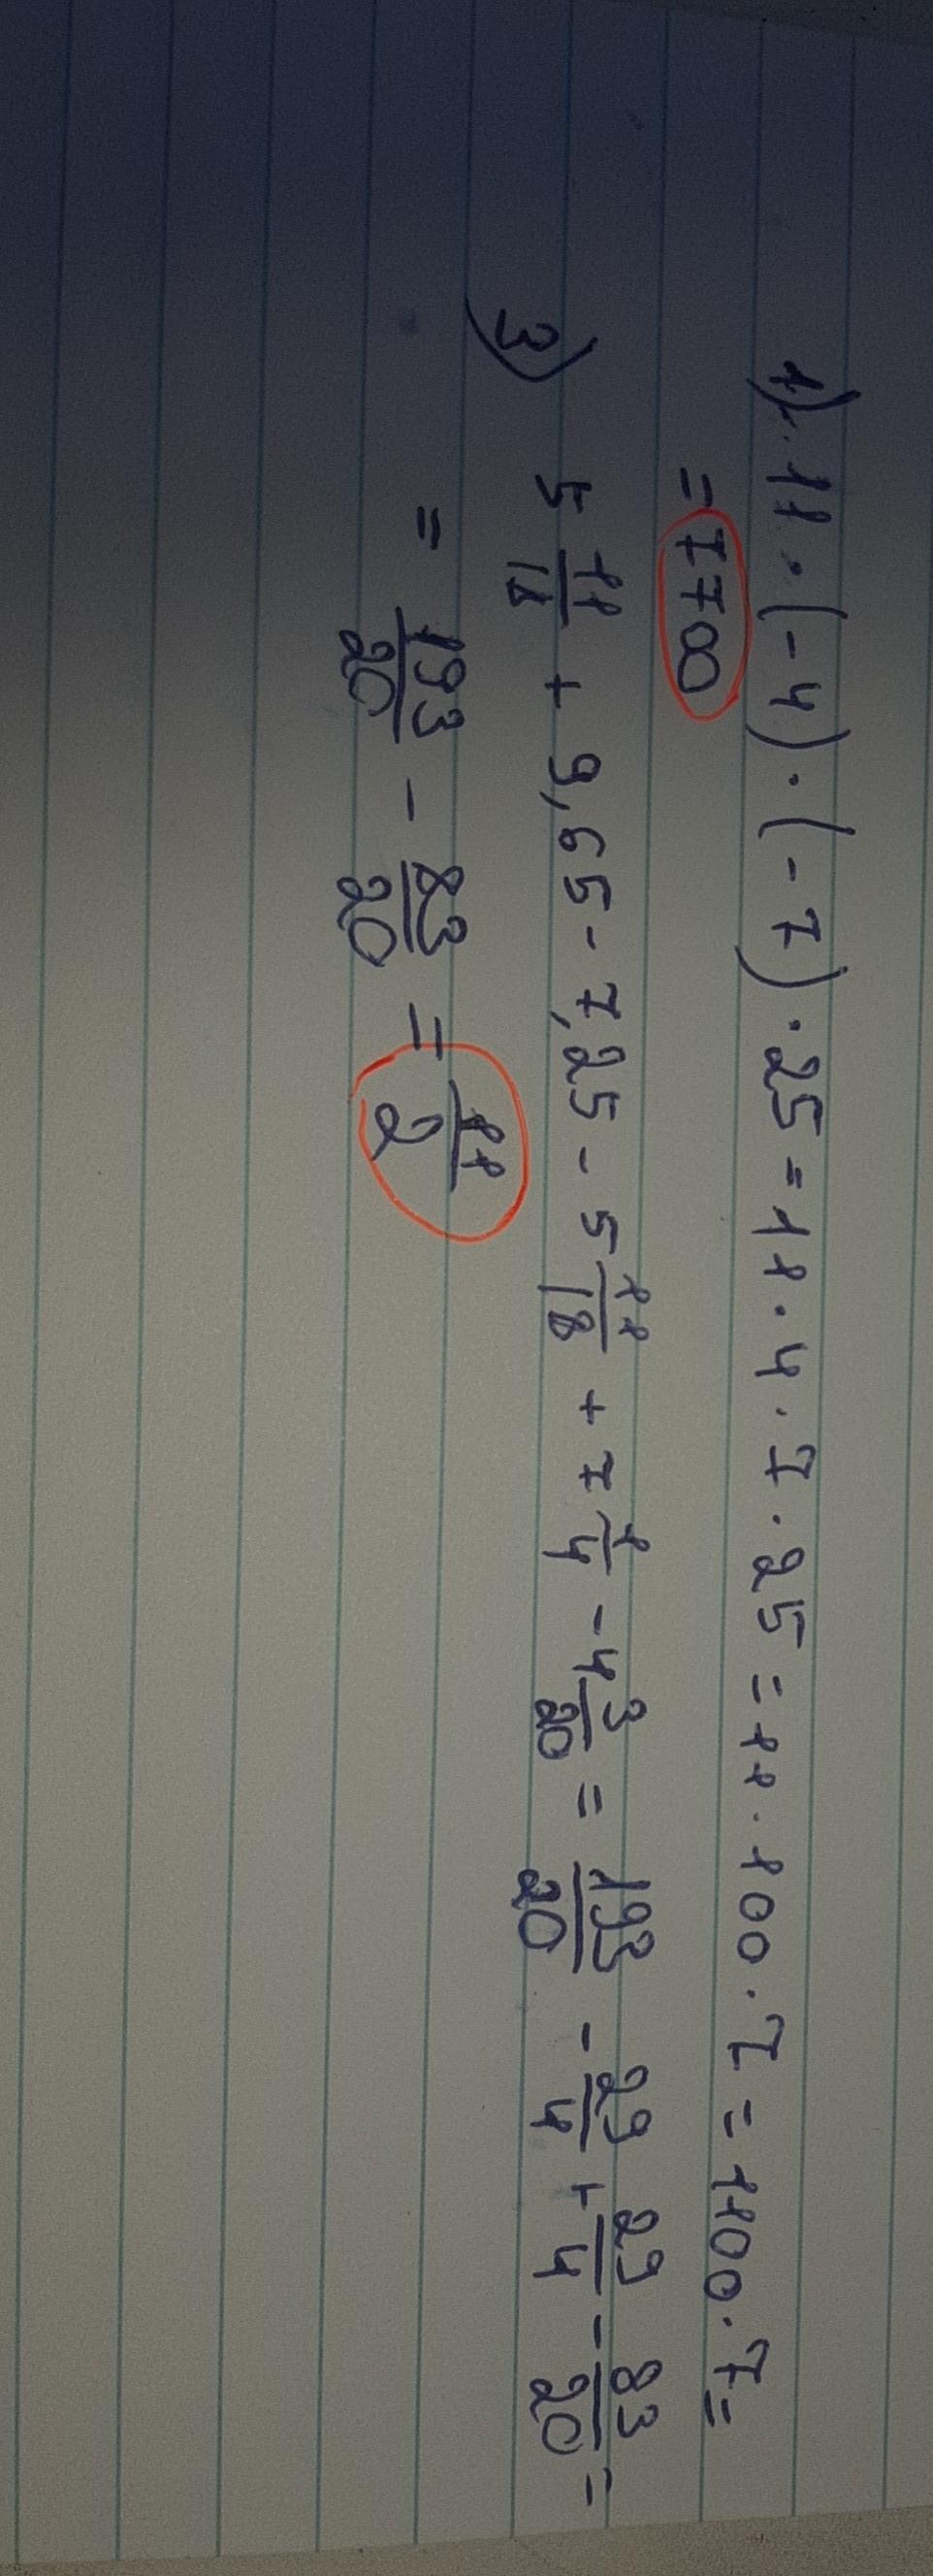 1). 11 · (-4) · (-7) · 25 = 11 · 4 · 7 · 25 = 11 · 100 · 7 = 1100 · 7 =
= 7700
3) 5 11/18 + 9,65 - 7,25 - 5 11/18 + 7 1/4 - 4 3/20 = 193/20 - 29/4 + 29/4 - 83/20 =
= 193/20 - 83/20 = 11/2